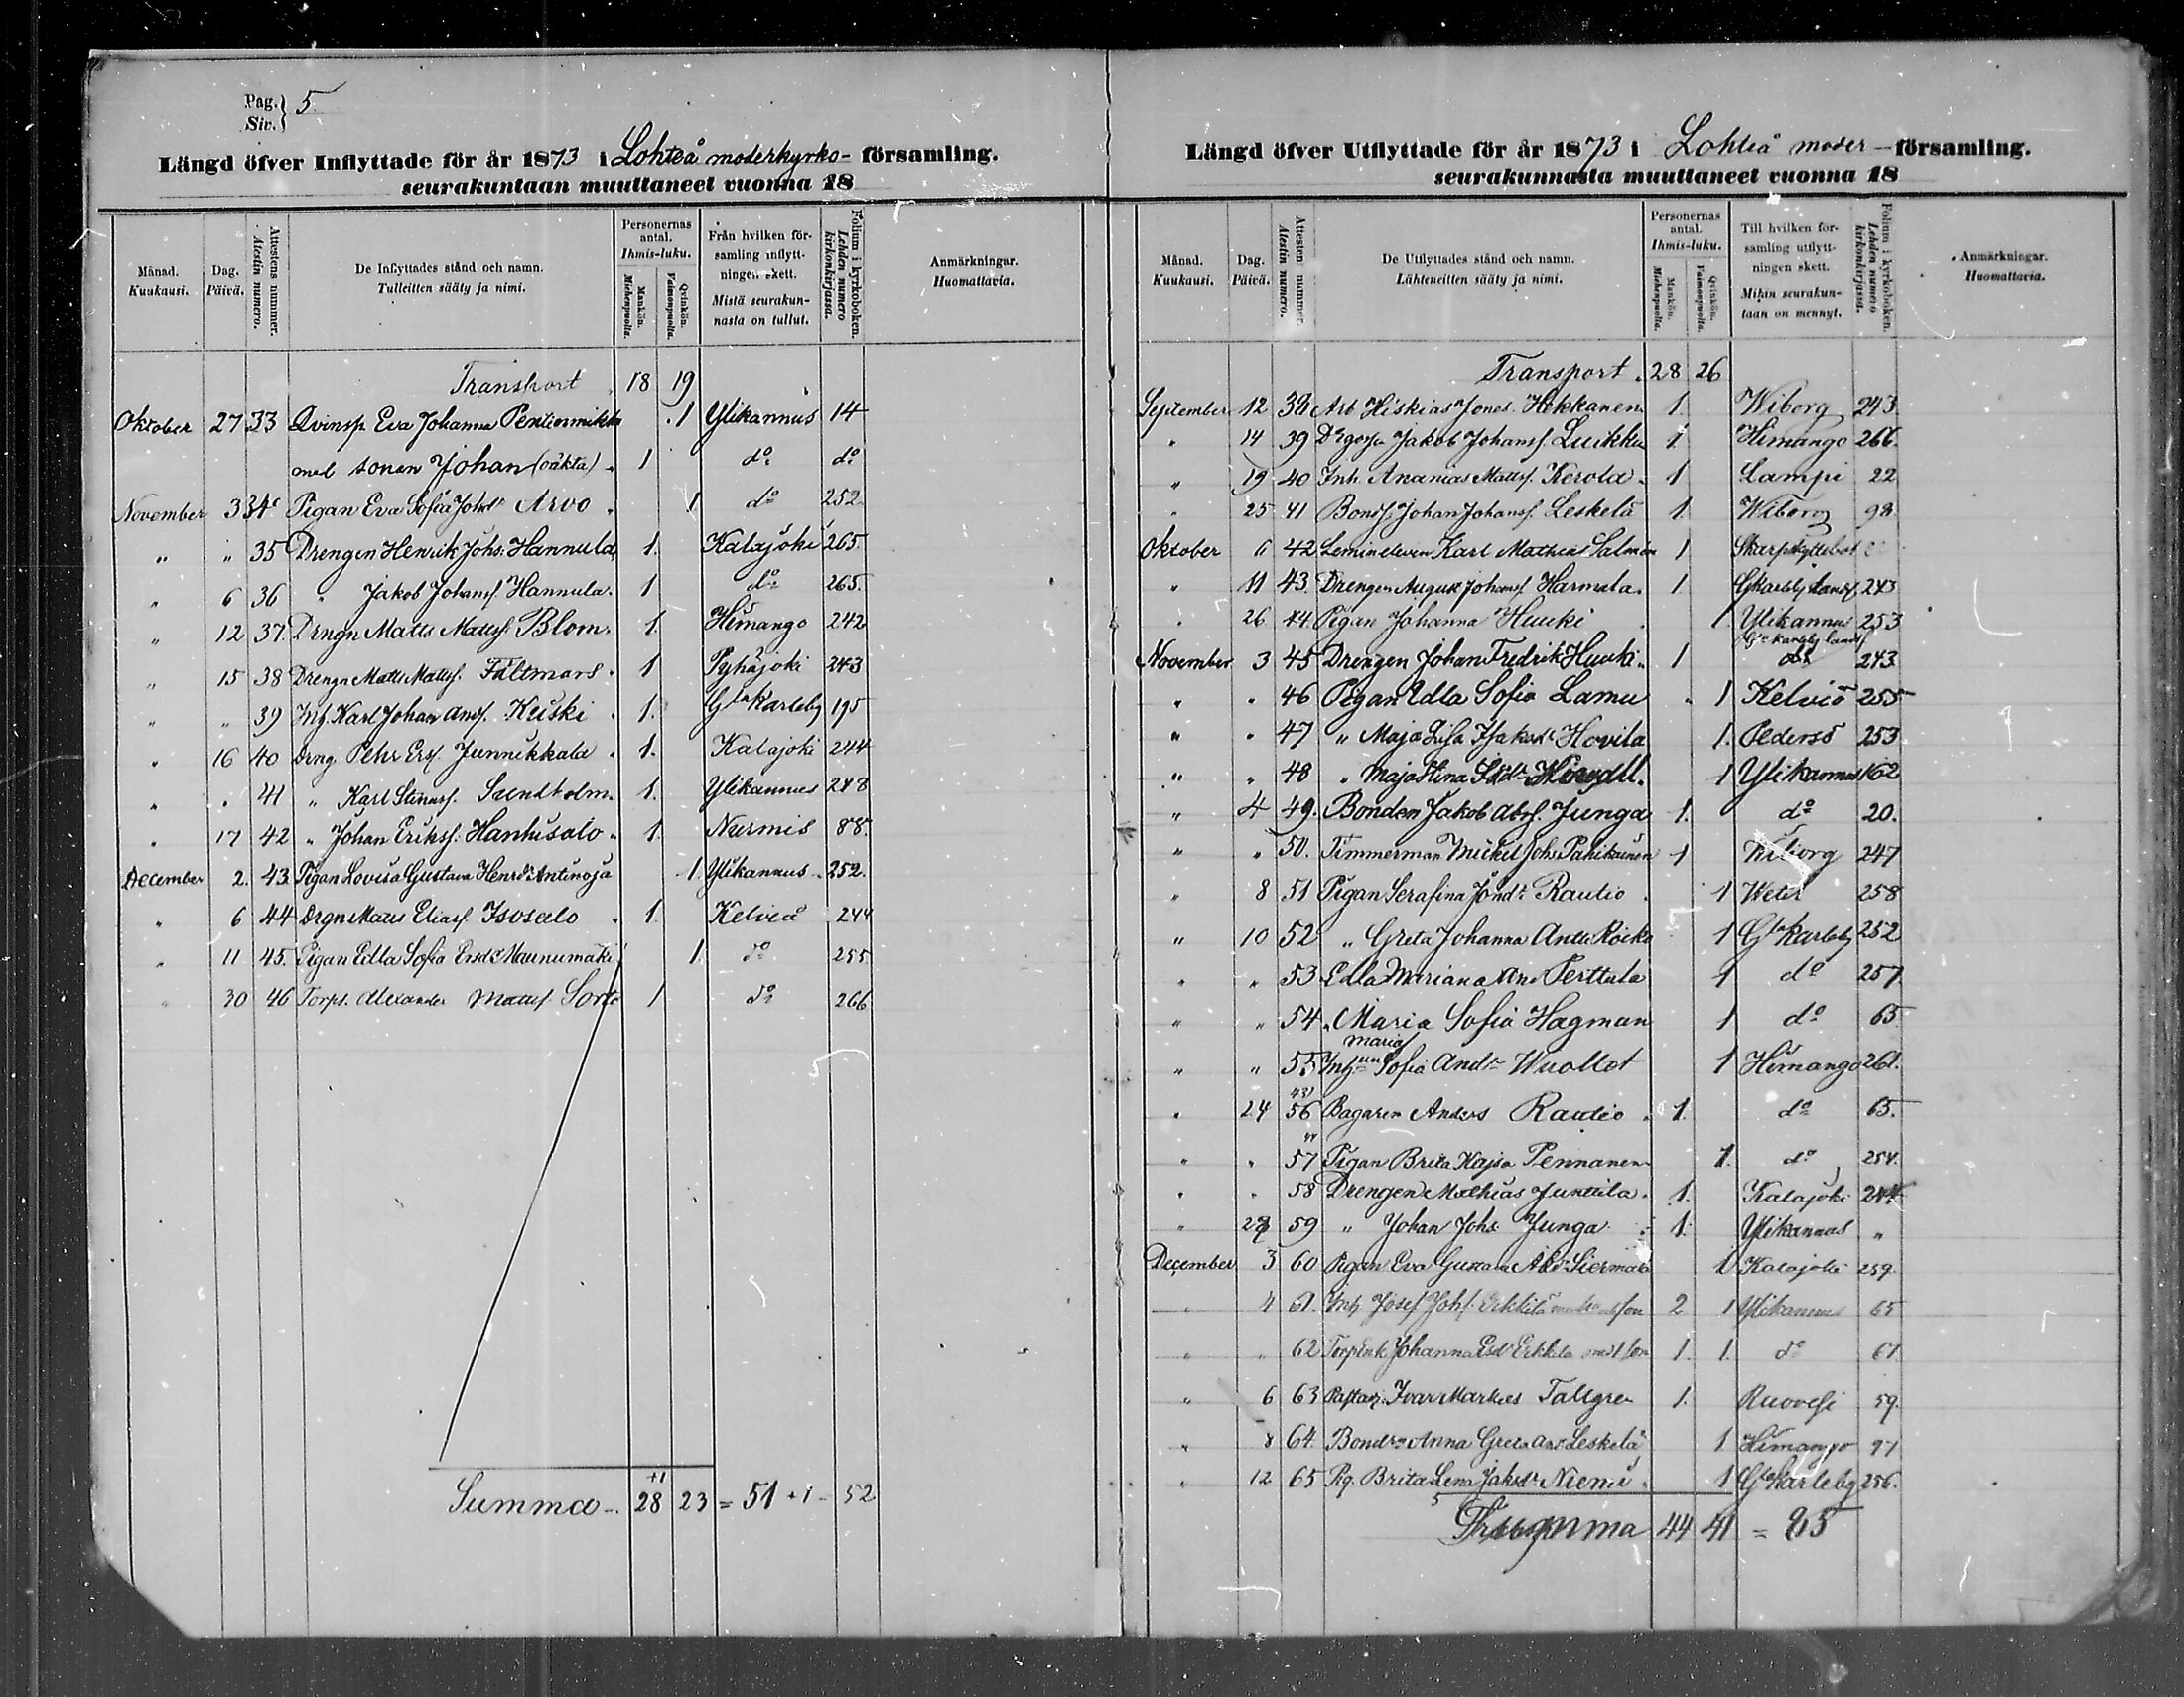 Pag. } 5.
Siv. }
Längd öfver Inflyttade för år 1873 i Lohteå moderkyrko- församling.
seurakuntaan muuttaneet vuonna 18
Månad. Kuukausi. Dag. Päivä. Attestens nummer. Atestin numero. De Inflyttades stånd och namn. Tulleitten sääty ja nimi. Personernas antal. Ihmis-luku. Mankön. Miehenpuolta. Qvinkön. Vaimonpuolta. Från hvilken församling inflyttningen skett. Mistä seurakunnasta on tullut. Folium i kyrkoboken. Lehden numero kirkonkirjassa. Anmärkningar. Huomattavia.
Transport 18 19
Oktober 27 33 Qvinsp Eva Johanna 1 Ylikannus 14
med sonen Johan (oäkta) 1 do do
November 3 34 Pigan Eva Sofia Johdr Arvo 1 do 252
" " 35 Drengen Henrik Johs. Hannula 1. Kalajoki 265.
" 6 36 " Jakob Johansf Hannula. 1 do 265.
" 12 37. Drngn Matts Mattsf. Blom. 1. Himango 242
" 15 38 Drengn Matts Mattsf. Fältmars. 1 Pyhäjoki 243
" " 39 Inh. Karl Johan Andsf. Keiski 1. Gla Karleby 195
" 16 40 Drng Pehr Ersf. Junnikkala 1. Kalajoki 244
" " 41 " Karl Sundholm. 1. Ylikannus 248
" 17 42 " Johan Eriksf. Hanhisalo 1. Nurmis 88.
December 2. 43. Pigan Lovisa Gustava Henrdr Antinoja 1. Ylikannus 252.
" 6 44 Drgn Matts Eliasf. Isosalo 1. Kelviå 244
" 11 45. Pigan Edla Sofia Ersdr Maunumäki 1. do 255
" 30 46 Torp. Alexander Mattsf 1 do 266
+1
Summa 28 23 = 51 + 1 - 52
Längd öfver Utflyttade för år 1873 i Lohteå moder-församling.
seurakunnasta muuttaneet vuonna 18
Månad. Kuukausi. Dag. Päivä. Attesten nummer. Atestin numero. De Utflyttades stånd och namn. Lähteneitten sääty ja nimi. Personernas antal. Ihmis-luku. Mankön. Miehenpuolta. Qvinkön. Vaimonpuolta. Till hvilken församling utflyttningen skett. Mihin seurakuntaan on mennyt. Folium i kyrkoboken. Lehden numero kirkonkirjassa. Anmärkningar. Huomattavia.
Transport 28 26
September 12 38 Arb Hiskias Jones. Hekkanen 1. Wiborg 243
" 14 39 Jakob Johansf. Luikku 1 Himango 266.
" 19 40 Inh. Ananias Mattsf. Kerola 1 Lampi 22
" 25 41 Bondsf Johan Johansf. Leskelä 1. Wiborg 98
Oktober 6 42 Karl Mathias Salmén 1
" 11 43. Drengen August Johansf Harmala. 1. GKarleby Landsf. 243
" 26 44 Pigan Johanna Huuki 1. Ylikannus 253
Gla Karleby landsf
November 3 45 Drengen Johan Fredrik Huuki 1 do 243
" " 46 Pigan Edla Sofia Lamu 1 Kelviå 255
" " 47 " Maja Lisa Isaksdr Hovila 1. Pedersö 253
" " 48 " Maja Stina 1 Ylikannus 162
" 4 49. Bonden Jakob Absf. Junga 1. do 20.
" " 50. Timmerman Mickel Johs Pahikainen 1 Wiborg 247
" 8 51 Pigan Serafina Rautio 1 Wetil 258
" 10 52 " Greta Johanna 1 Gla Karleby 252
" " 53 Edla Mariana And Perttula 1 do 257
" " 54 " Maria Sofia Hagman 1 do 65
Maria
" " 55 Inh Sofia Anddr Wuollet 1 Himango 261.
" 24 56 Bagaren Anders Rautio 1. do 65.
" " 57 Pigan Brita Kajsa Pennanen 1. do 254.
" " 58 Drengen Mathias Junttila. 1. Kalajoki 244
" 29 59 " Johan Johs Junga 1. Ylikannus "
December 3 60 Pigan Eva Gustava Siermala 1 Kalajoki 259.
" 4 61. Inh Josef Johsf. Erkkilä 2 1 Ylikannus 65
" " 62 Torpenk Johanna Erkkilä med 1 son 1. 1. do 61
" 6 63 Pastorn Ivar Markus Tallgren 1. Ruovesi 59.
" 8 64. Anna Greta And Leskelä 1 Himango 97
" 12 65 Pig. Brita Lena Jaksdr Niemi 1 Gla Karleby 256.
Summa 44 41 = 85